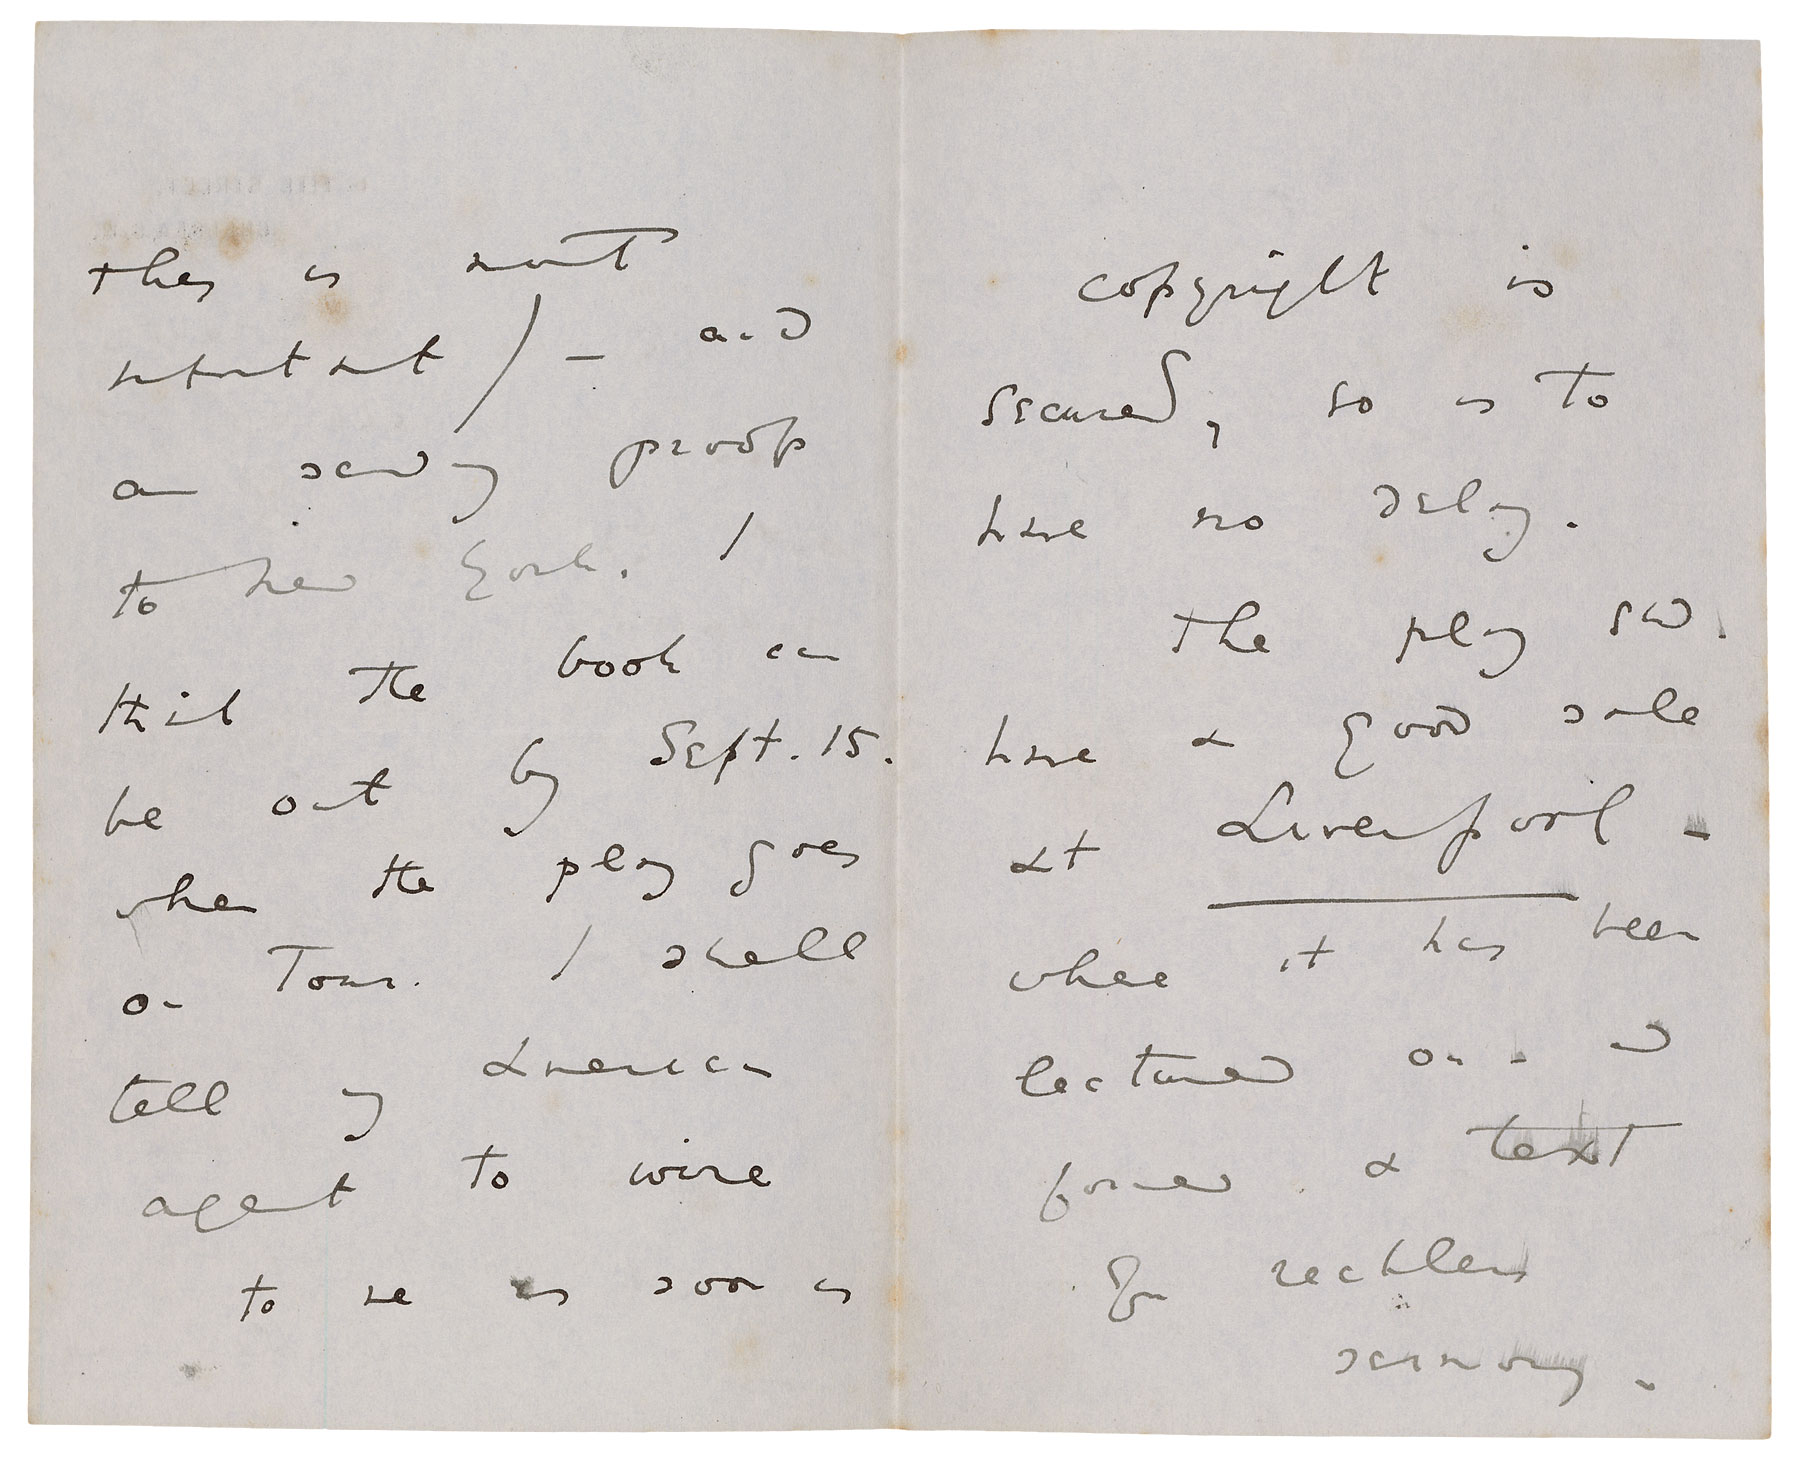 this is most
important) – and
am sending proofs
to New York. I
think the book can
be out by Sept. 15.
when the play goes
on Tour. I shall
tell my American
agent to wire
to me as soon as
copyright is
secured, so as to
have no delay.
The play shd.
have a good sale
at Liverpool -
where it has been
lectured on - and
formed a text
for reckless
sermons.